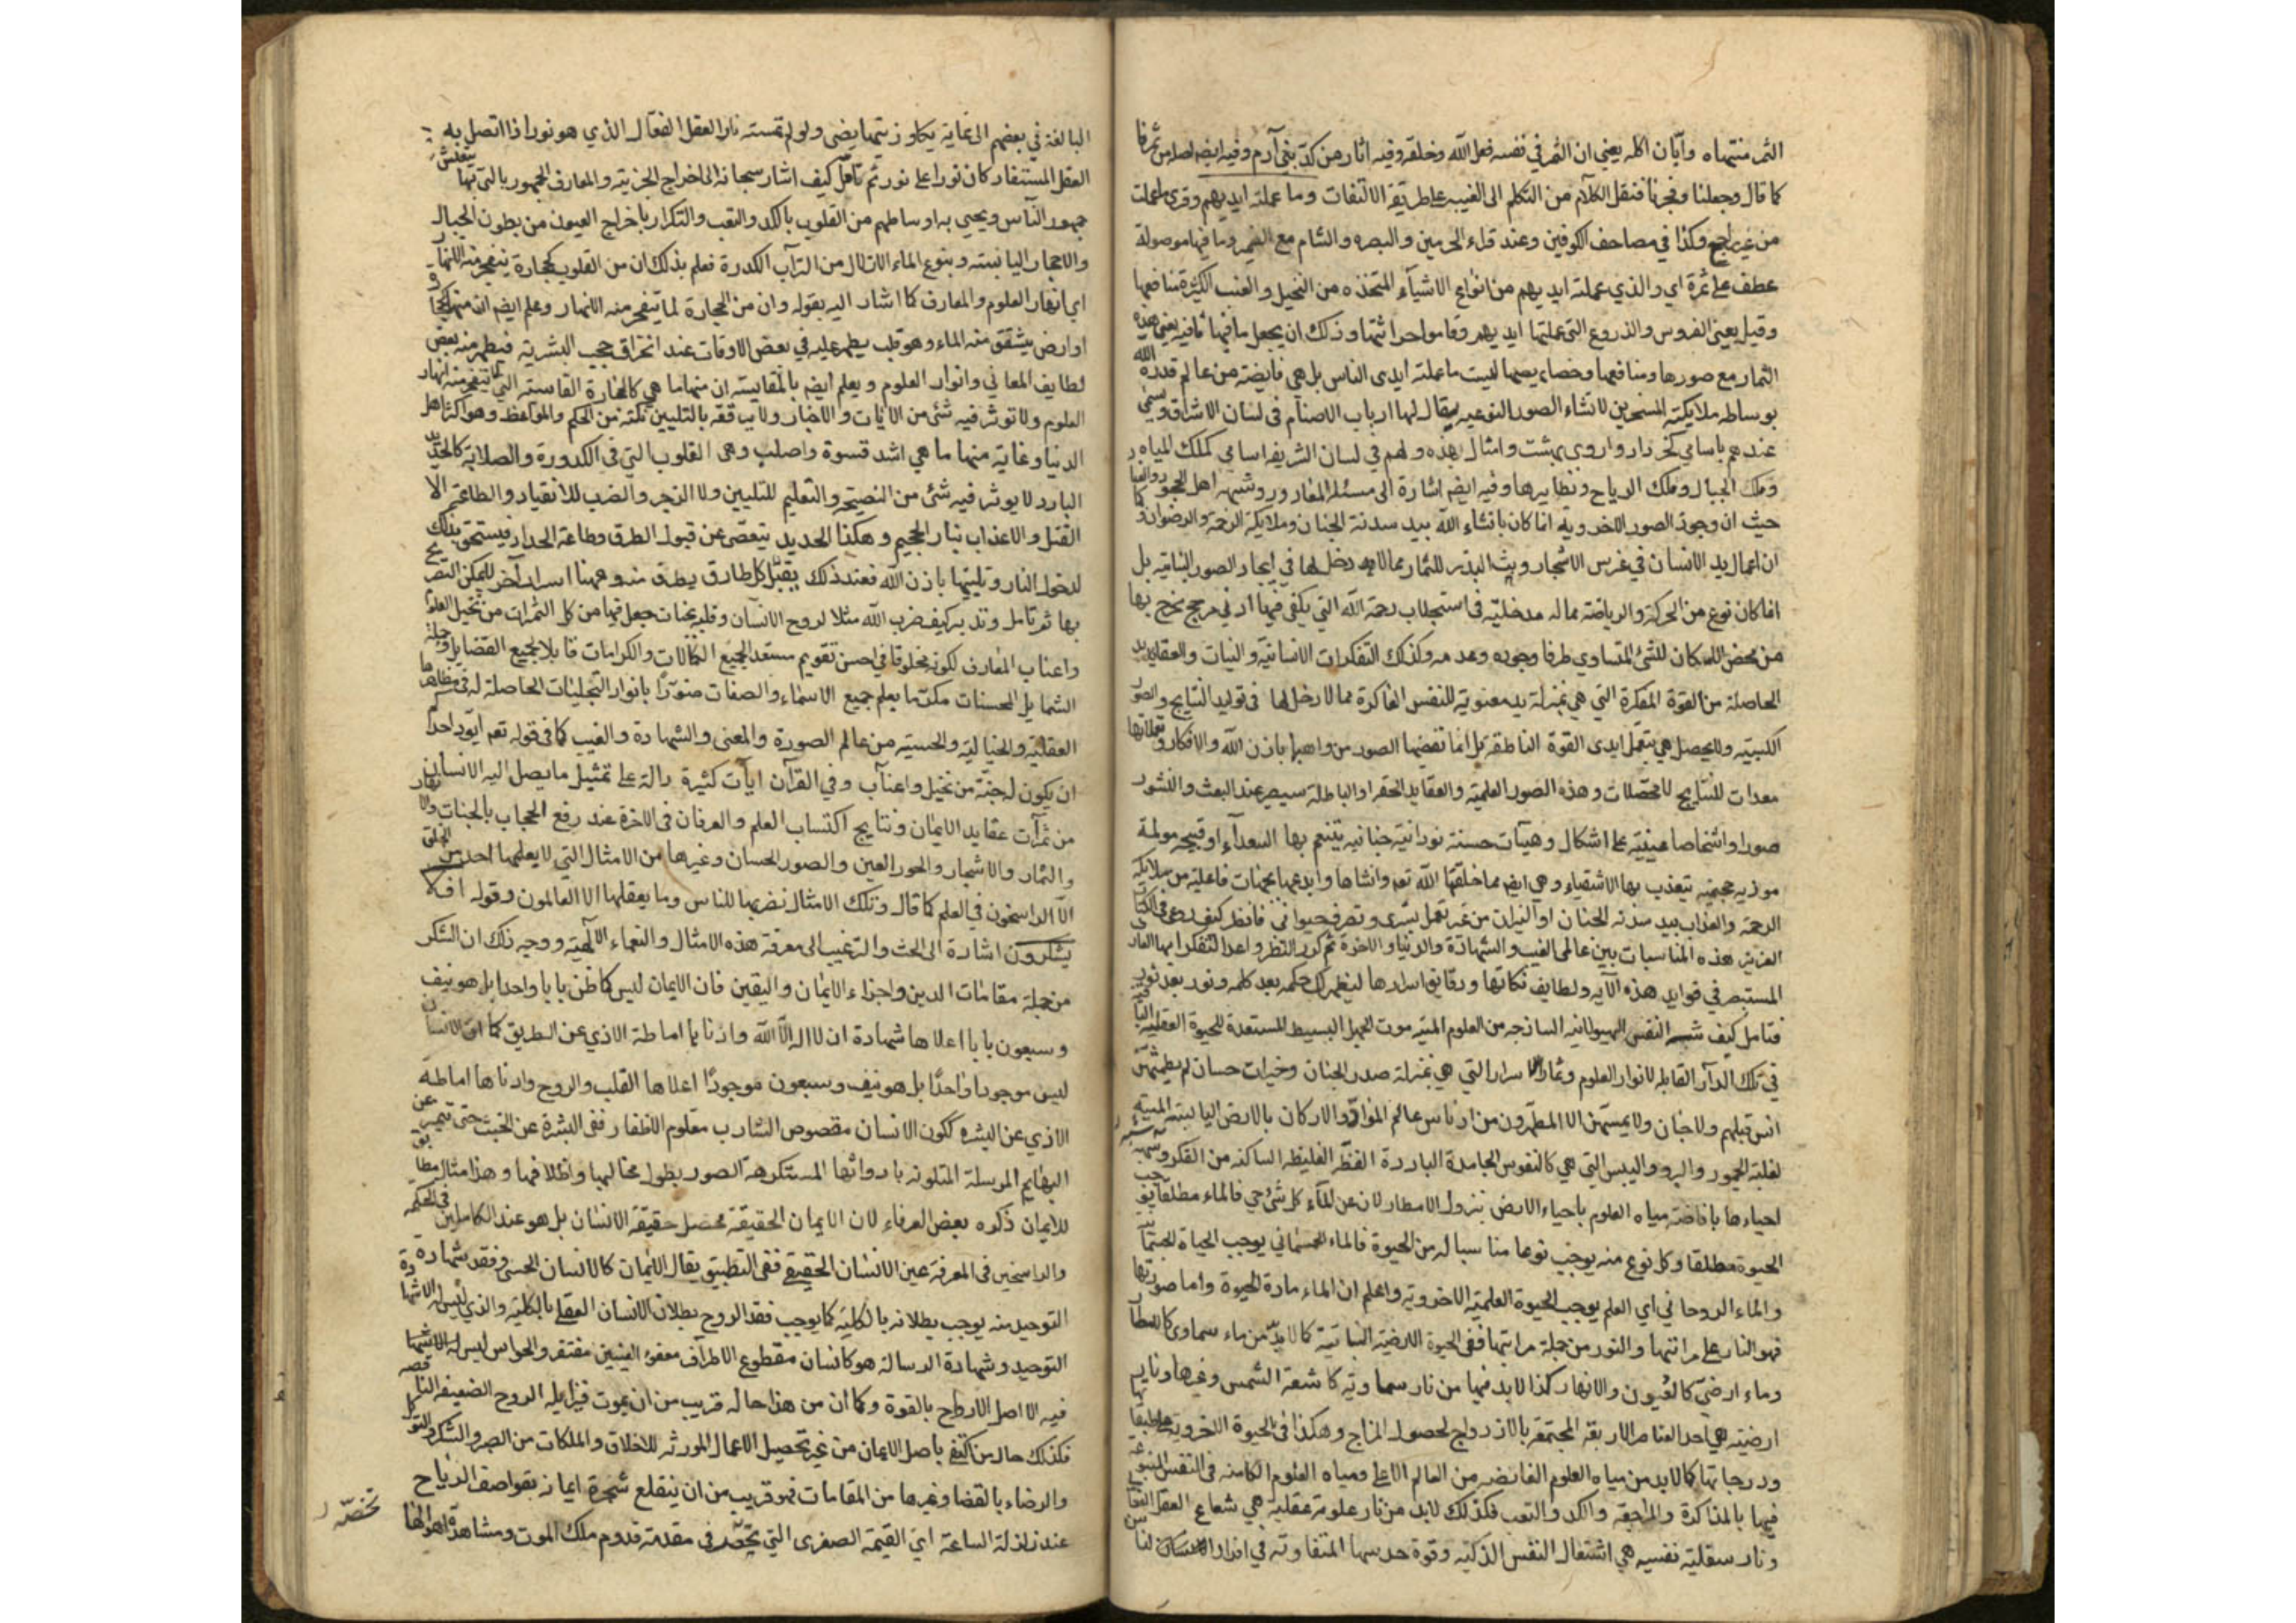 الثمر منتهاه وابّان اكله يعني ان الثمر في نفسه فعل الله وخلقه وفيه اثار من كدّ بني آدم وفيه ايضم
كما قال وجعلنا وفجرنا فنقل الكلام من التكلم الى الغيبه على طريقة الالتفات وما عملته ايديهم وقرى ما عملت
من غير راجع وكذا في مصاحف الكوفين وعند قراء الحرمين والبصره والشام مع الضمير وما فيها موصولة
عطف على ثمرة اي والذي عملته ايديهم من انواع الاشيآء المتخذه من النخيل والعنب الكثيرة منافعها
وقيل يعني الغروس والذروع التي عملتها ايديهم وقاموا حراثتها وذلك ان يجعل ما فيها نافيه يعني هذه
الثمار مع صورها ومنافعها وخصايصها ليست ما عملته ايدى الناس بل هي فايضة من عالم قدرة الله
بوساطه ملايكته المسخرين لانشاء الصور النوعيه يقال لها ارباب الاصنام فى لسان الاشراق ويسمى
عندهم باسامي كخرداد واردي بهشت وامثال هذه ولهم في لسان الشريعه اسامي كملك المياه
وملك الجبال وملك الرياح ونظايرها وفيه ايضم اشارة الى مسئلة المعاد ورد شبهه اهل الجحود
حيث ان وجود الصور الاخرويه انما كان بانشاء الله بيد سدنة الجنان وملايكة الرحمة والرضوان كما
ان اعمال يد الانسان في غرس الاشجار وبث البذر للثمار مما لا دخل لها في ايجاد الصور النباتية بل
انما كان نوع من الحركة والرياضة مما له مدخلية في استجلاب رحمة الله التي يكفي فيها ادنى مرجح يخرج بها
من محض الامكان للشئ المتساوي طرفا وجوده وعدمه وكذلك التفكرات الانسانية والنيات والعقايد
الحاصلة من القوة المفكرة التي هي بمنزلة يد معنوية للنفس الفاكرة مما لا دخل لها في توليد النتايج والصور
الكسبيه ولا يحصل هي بتعمل ايدى القوة الناطقة بل انما تفيضها الصور من واهبها باذن الله والافكار
معدات للنتايج لا محصلات وهذه الصور العلمية والعقايد الحقه او الباطلة سيصير عند البعث والنشور
صورا واشخاصا عينية على اشكال وهيآت حسنة نورانية جنانيه يتنعم بها السعدآء او قبيحه مولمة
موذيه جحيميه يتعذب بها الاشقياء وهي ايضم مما خلقها الله تعم وانشاها وابدعها بجهات فاعليه من ملايكة
الرحمة والعذاب بيد سدنه الجنان او النيران من غير تعمل بشرى وتصرف حيواني فانظر كيف روعى في الكتاب
العزيز هذه المناسبات بين عالمى الغيب والشهادة والدنيا والاخرة ثم كرر النظر واعد التفكر ايها العارف
المستبصر في فوايد هذه الآيه ولطايف نكاتها ودقايق اسرارها ليظهر لك حكمه بعد حكمه ونور بعد نور
فتامل كيف شبه النفس الهيولانيه الساذجه من العلوم الميته موت الجهل البسيط المستعدة للحيوة العقليه
في تلك الدار القابله لانوار العلوم وثمار الاسرار التي هي بمنزلة صدر الجنان وخيرات حسان لم يطمثهن
انس قبلهم ولا جان ولا يمسهن الا المطهرون من ادناس عالم المواد والاركان بالارض اليابسة الميته
لغلبة الجمود والبرد واليبس التي هي كالنفوس الجامدة الباردة الفظه الغليظه الساكنه من الفكر وشبه
احياءها بافاضة مياه العلوم باحياء الارض بنزول الامطار لان من المآء كل شئ حي فالماء مطلقا يوجب
الحيوة مطلقا وكل نوع منه يوجب نوعا مناسبا له من الحيوة فالماء الجسماني يوجب الحياة الجسمانية
والماء الروحاني اي العلم يوجب الحيوة العلمية الاخروية واعلم ان الماء مادة الحيوة واما صورتها
فهو النار على مراتبها والنور من جملة مراتبها ففى الحيوة الارضية النباتية كما لابد من ماء سماوى كالامطار
وماء ارضي كالعيون والانهار كذا لابد فيها من نار سماوية كاشعة الشمس وغيرها ونار
ارضية هي احد العناصر الاربعة المجتمعة بالازدواج لحصول المزاج وهكذا في الحيوة الاخروية
ودرجاتها كما لابد من مياه العلوم الفايضه من العالم الاعلى ومياه العلوم الكامنه فى النفس
فيها بالمذاكرة والمراجعة والكد والتعب فكذلك لابد من نار علوية عقلية هي شعاع العقل الفعال
ونار سفلية نفسيه هي اشتعال النفس الذكية وقوة حدسها المتفاوتة في افراد الانسان
البالغة في بعضهم الى غاية يكاد زيتها يضئ ولو لم تمسسه نار العقل الفعال الذي هو نور اذا اتصل به
العقل المستفاد كان نورا على نور ثم تامل كيف اشار سبحانه الى اخراج الحزبية والمعارف الجمهور بالتي يتعيش بها
جمهور الناس ويحيى به اوساطهم من القلوب بالكد والتعب والتكرار باخراج العيون من بطون الجبال
والاحجار اليابسة وينبوع الماء الاتلال من التراب الكدرة فعلم بذلك ان من القلوب كحجارة يتفجر منه الانهار
اي انهار العلوم والمعارف كما اشار اليه بقوله وان من الحجارة لما يتفجر منه الانهار وعلم ايضم ان منها كحجارة
او ارض يتشقق منه الماء وهو قلب يظهر عليه في بعض الاوقات عند انخراق حجب البشرية فيظهر منه بعض
لطايف المعاني وانوار العلوم ويعلم ايضم بالمقايسة ان منها ما هي كالحجارة القاسية التي لا يتفجر منه انهار
العلوم ولا توثر فيه شئ من الآيات والاخبار ولا يرققه بالتليين نكته من الحكم والمواعظ وهو اكثر اهل
الدنيا وغاية منها ما هي اشد قسوة واصلب وهى القلوب التي في الكدورة والصلابة كالحديد
البارد لا يوثر فيه شئ من النصيحه والتعليم للتليين ولا الزجر والضرب للانقياد والطاعة الا
القتل والاعذاب بنار الجحيم وهكذا الحديد يتعصى عن قبول الطرق وطاعة الحداد فيستحق بذلك
لدخول النار وتليينها باذن الله فعند ذلك يقبل كل طارق يطرق منه وههنا اسرار آخر لا يمكن التصريح
بها ثم تامل وتدبر كيف ضرب الله مثلا لروح الانسان وقلبه بجنات جعل فيها من كل الثمرات من نخيل العلوم
واعناب المعارف لكونه مخلوقا في احسن تقويم مستعدا لجميع الكمالات والكرامات قابلا لجميع الفضايل وجملة
الشمايل المحسنات مكرما بعلم جميع الاسماء والصفات منورًا بانوار التجليات الحاصلة له في مظاهرها
العقلية والخيالية والحسية من عالم الصورة والمعنى والشهادة والغيب كما في قوله تعم ايود احدكم
ان يكون له جنة من نخيل واعناب وفي القرآن ايات كثيرة دالة على تمثيل ما يصل اليه الانسان
من ثمرآت عقايد الايمان ونتايج اكتساب العلم والعرفان في الاخرة عند رفع الحجاب بالجنات والانهار
والثمار والاشجار والحور العين والصور الحسان وغيرها من الامثال التي لا يعلمها احد من الخلق
الا الراسخون في العلم كما قال وتلك الامثال نضربها للناس وما يعقلها الا العالمون وقوله افلا
يشكرون اشارة الى الحث والترغيب الى معرفة هذه الامثال والنعماء الآلهية ووجه ذلك ان الشكر
من جملة مقامات الدين واجزاء الايمان واليقين فان الايمان ليس كما ظن بابا واحدا بل هو نيف
وسبعون بابا اعلاها شهادة ان لا اله الا الله وادناها اماطة الاذي عن الطريق كما ان الانسان
ليس موجودا واحدًا بل هو نيف وسبعون موجودًا اعلاها القلب والروح وادناها اماطة
الاذي عن البشره ككون الانسان مقصوص الشارب مقلوم الاظفار نقى البشرة عن الخبث حتى يتميز عن
البهايم المرسلة المتلوثه باروائها المستكرهة الصور بطول مخالبها واظلافها وهذا مثال مطابق
للايمان ذكره بعض العرفاء لان الايمان الحقيقة محصل حقيقة الانسان بل هو عند الكاملين في الحكمه
والراسخين فى المعرفة عين الانسان الحقيقي ففى التطبيق يقال الايمان كالانسان الحسى وفقد شهادة
التوحيد منه يوجب بطلانه بالكلية كما يوجب فقد الروح بطلان الانسان العقلى بالكلية والذي ليس له الا شهادة
التوحيد وشهادة الرسالة هو كانسان مقطوع الاطراف مفقوء العينين مفتقد والحواس ليس له
فيه الا اصل الارواح بالقوة وكما ان من هذا حاله قريب من ان يموت فيزايله الروح الضعيفه الناقصه
فكذلك حال من اكتفى باصل الايمان من غير تحصيل الاعمال المورثه للاخلاق والملكات من الصبر والشكر والتوكل
والرضاء بالقضا وغيرها من المقامات فهو قريب من ان ينقلع شجرة ايمانه بقواصف الرياح
عند زلزلة الساعة اي القيمة الصغرى التي في مقدمة قدوم ملك الموت ومشاهدة اهوالها